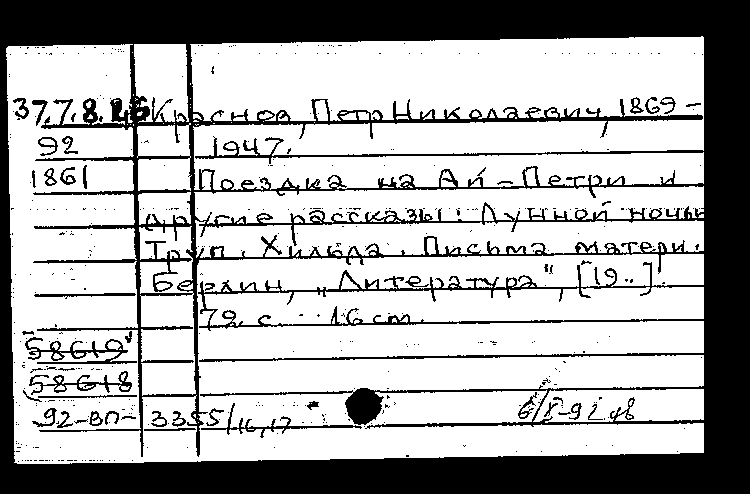 37.7.8. Краснов, Петр Николаевич, 1869-
92 1947.
1861 Поездка на Ай-Петри и
другие рассказы: Лунной ночью
Труп. Хильда. Письма матери.
Берлин, „Литература", [19..].
79 с. 16 cm.
58619
58618
92-вп- 3355/16,17 6/8-92